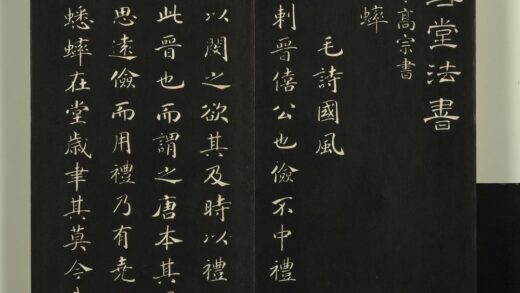 堂法書
高宗書
蟀
毛詩國風
刺晉僖公也儉不中禮
以閔之欲其及時以禮
此晉也而謂之唐本其
思遠儉而用禮乃有堯
蟋蟀在堂歲聿其莫今